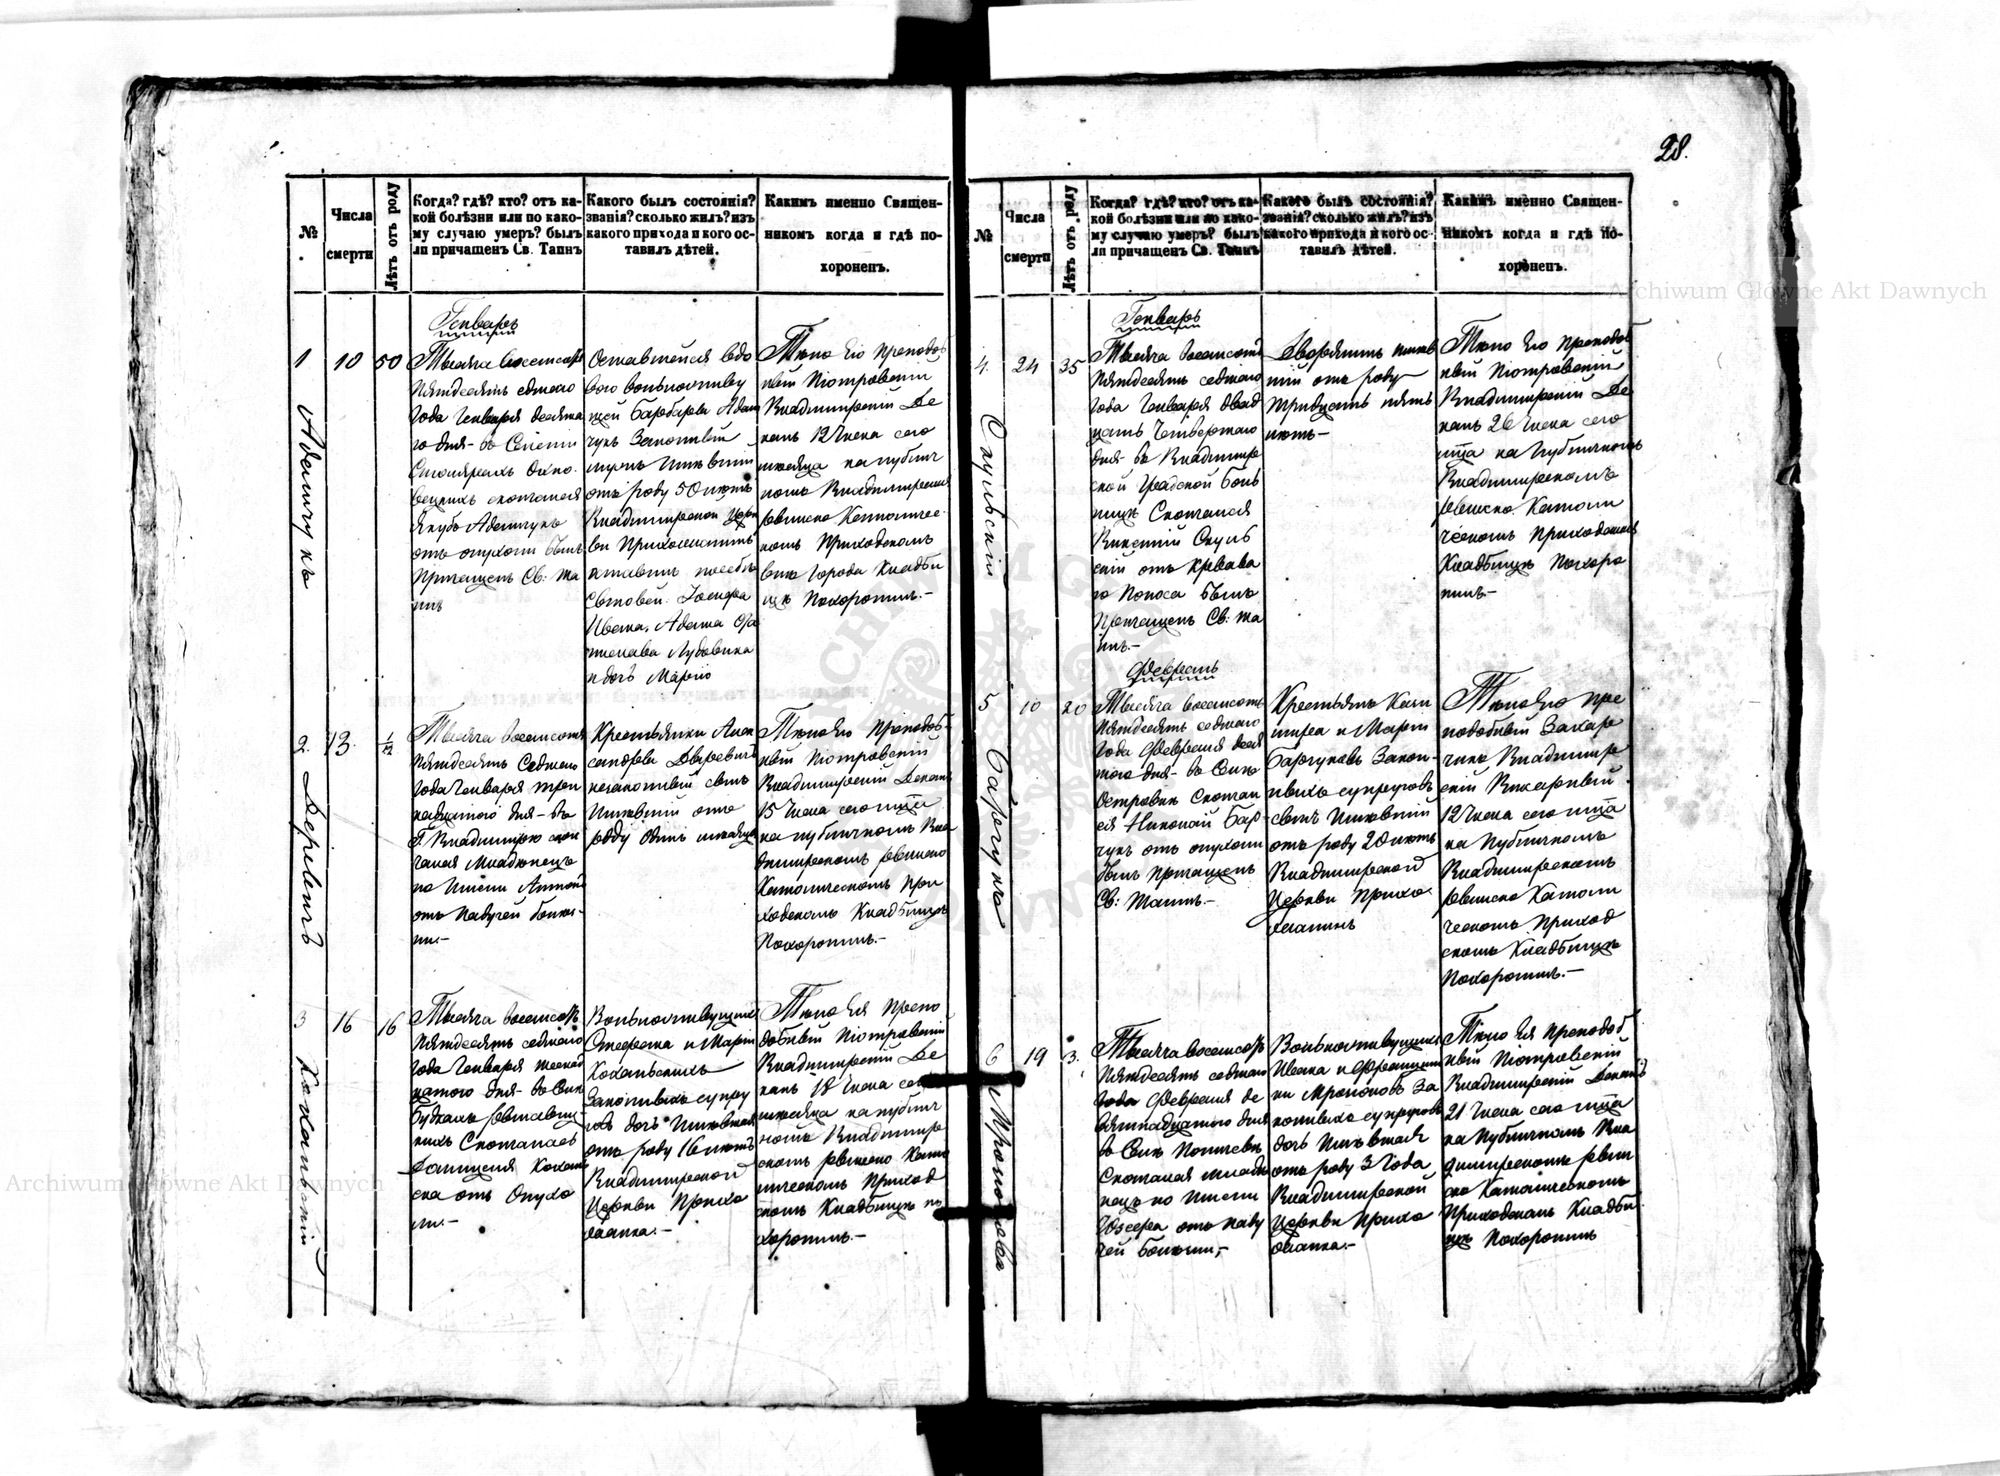 28.
№
Числа
смерти
Лѣтъ отъ роду
Когда? гдѣ? кто? отъ ка-
кой болѣзни или по како-
му случаю умеръ? былъ
ли причащенъ Св. Таинъ
Какого былъ состоянія?
званія? сколько жилъ? изъ
какого прихода и кого ос-
тавилъ дѣтей.
Какимъ именно Священ-
никомъ когда и гдѣ по-
хороненъ.
Генварь
1
10
50
Адамчукъ
Тысяча восемсотъ
пятдесятъ седмаго
года Генваря десята
го дня - въ Селеніи
скончался
Якубъ Адамчукъ
отъ опухоли былъ
Причащенъ Св: та
инъ
Оставшейся вдо
вою вольноживу
щей Барбары Адам
чукъ Законный
мужъ имѣвшій
отъ роду 50 лѣтъ
Владимирской Цер
кви Прихожанинъ
оставилъ послѣ
Ивана, Адама
Людовика
и дочь Марію
Тѣло Его Преподоб
ный Піотровскій
Владимирскій Де
канъ 12 Числа сего
мѣсяца на публич
номъ Владимирском
римско Католичес
комъ Приходскомъ
Города Кладби
щѣ Похоронилъ.-
2.
13.
1/12
Тысяча восемсотъ
пятдесятъ Седмаго
года Генваря три
надцатого дня - въ
Г. Владимирѣ скон
чался Младенецъ
по Имени Антон
отъ Падучей болѣз-
ни.-
Крестьянки Алек
сандры
незаконный сынъ
Имѣвшій отъ
роду одинъ мѣсяцъ
Тѣло Его Преподоб-
ный Піотровскій
Владимирскій Деканъ
15 Числа сего м-ца
на публичномъ Вла
димирскомъ римско
Католическомъ При
ходскомъ Кладбищѣ
Похоронилъ.-
3
16
16
Коханьскій
Тысяча восемсотъ
пятдесятъ седмаго
года Генваря шеснад
цатого дня - въ Селѣ
Скончалась
Коханьс
ка отъ Опухо
ли.-
Вольноживущихъ
Стефана и Маріи
Коханьскихъ
Законныхъ супру
говъ дочь Имѣвшая
отъ роду 16 лѣтъ
Владимирской
Церкви Прихо
жанка.-
Тѣло Ея Препо
добный Піотровскій
Владимирскій Де
канъ 18 Числа сего
мѣсяца на публич
номъ Владимир
скомъ римско Като
лическомъ Приход
скомъ Кладбищѣ по
хоронилъ.-
№
Числа
смерти
Лѣтъ отъ роду
Когда? гдѣ? кто? отъ ка-
кой болѣзни или по како-
му случаю умеръ? былъ
ли причащенъ Св. Таинъ
Какого былъ состоянія?
званія? сколько жилъ? изъ
какого прихода и кого ос-
тавилъ дѣтей.
Какимъ именно Священ-
никомъ когда и гдѣ по-
хороненъ.
Генварь
4.
24
35
Скульскій
Тысяча восемсотъ
пятдесятъ седмаго
года Генваря двад
цать Четвертаго
дня - въ Владимир
ской Градской Боль
ницѣ Скончался
Викентій Скуль
скій отъ Крвава
го Поноса былъ
Причащенъ Св: та
инъ.-
Дворянинъ имѣв
шій отъ роду
тридцать пять
лѣтъ-
Тѣло Его Преподоб
ный Піотровскій
Владимирскій Де
канъ 26 Числа сего
м-ца на Публичномъ
Владимирскомъ
римско Католи
ческомъ Приходскомъ
Кладбищѣ Похоро
нилъ.-
Февраль
5
10
20
Барчукъ
Тысяча восемсотъ
пятдесятъ седмаго
года Февраля деся
того дня - въ Селѣ
Островкѣ Скончал
ся Николай Бар-
чукъ отъ опухоли
былъ Причащенъ
Св: Таинъ.-
Крестьянъ
и Маріи
Барчуковъ Закон-
ныхъ супруговъ
сынъ Имѣвшій
отъ роду 20 лѣтъ
Владимирской
Церкви Прихо
жанинъ
Тѣло Его Пре
подобный Захар
чикъ Владимир
скій Викарный
12 Числа сего м-ца
на Публичномъ
Владимирскомъ
римско Католи
ческомъ Приход
скомъ Кладбищѣ
Похоронилъ.-
6
19
3.
Тысяча восемсотъ
пятдесятъ седмаго
года Февраля де
вятнадцатого дня
въ Селѣ
Скончался младе
нецъ по Имени
Юзефа отъ паду
чей болѣзни,-
Вольноживущихъ
Ивана и Францишки
За
конныхъ супруговъ
дочь Имѣвшая
отъ роду 3 года
Владимирской
Церкви Прихо
жанка.-
Тѣло Ея Преподоб
ный Піотровскій
Владимирскій Деканъ
21 Числа сего м-ца
на Публичномъ Вла
димирскомъ рим
ско Католическомъ
Приходскомъ Кладби
щѣ Похоронилъ
Archiwum Główne Akt Dawnych
Archiwum Główne Akt Dawnych